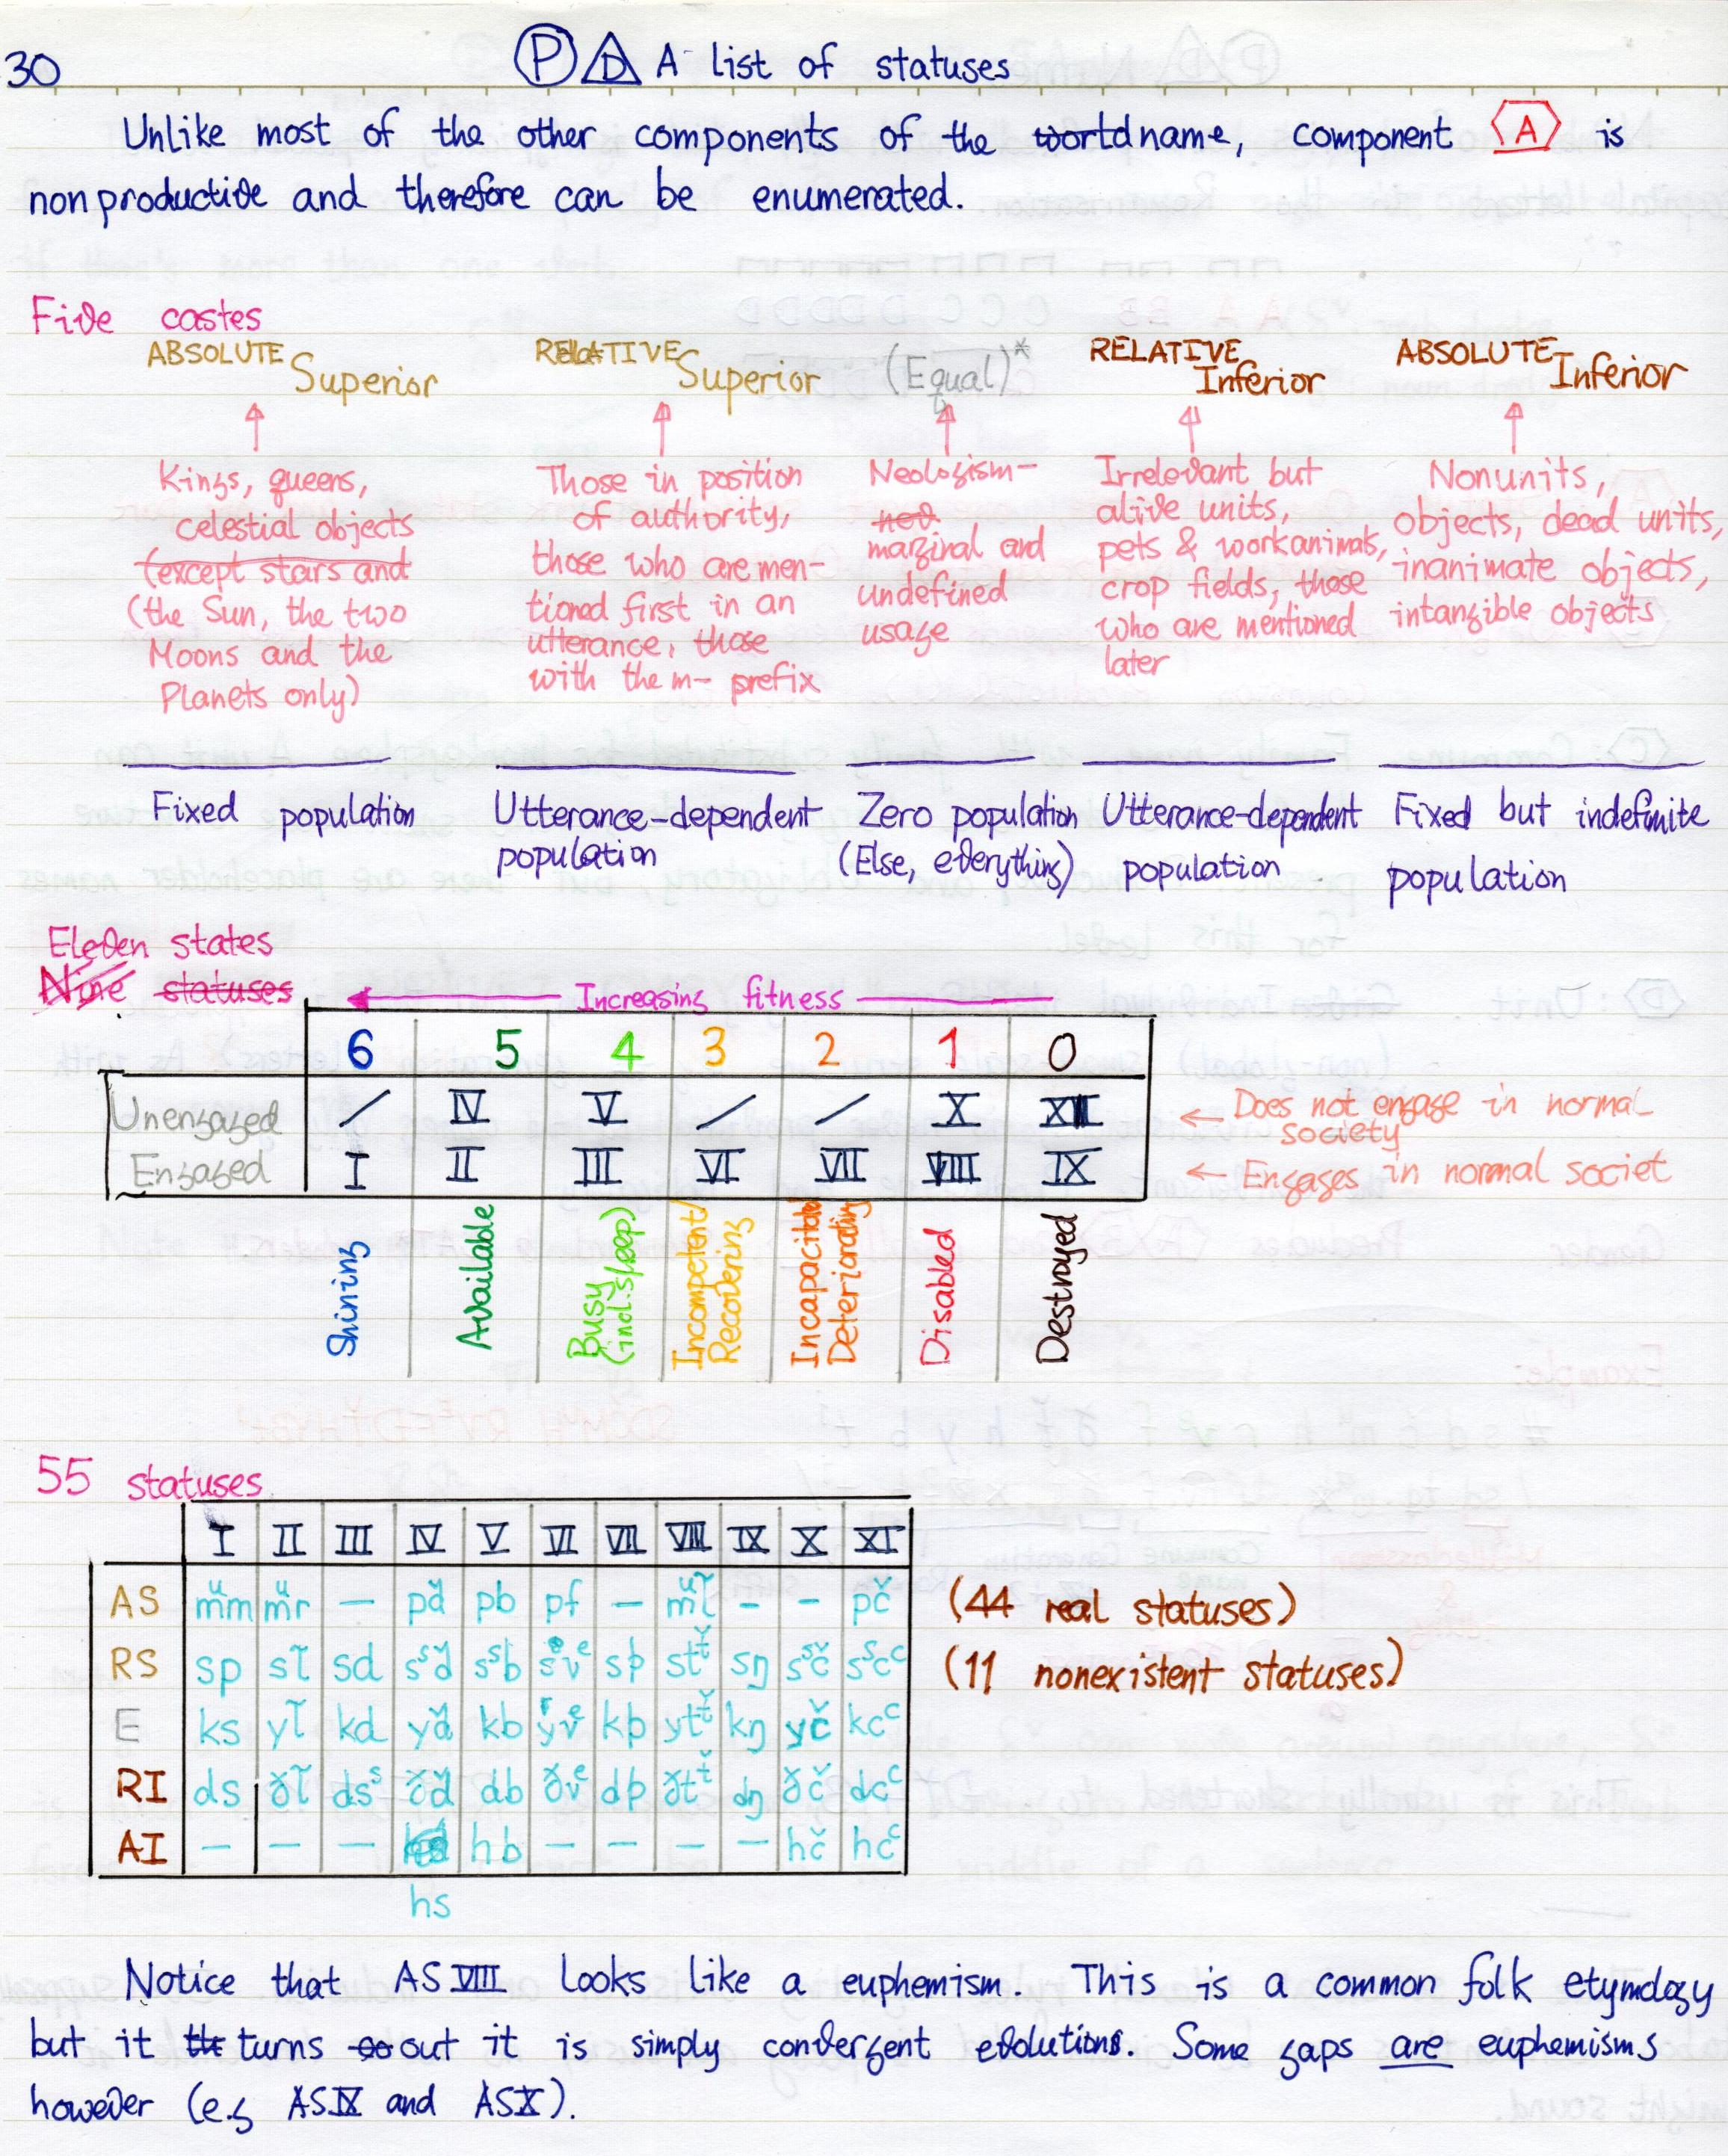 30
Ⓟ D A list of statuses
Unlike most of the other components of the world name, component A is
nonproductive and therefore can be enumerated.
Five castes
ABSOLUTE Superior
RELATIVE Superior
(Equal)*
RELATIVE Inferior
ABSOLUTE Inferior
Kings, queens,
celestial objects
(except stars and
(the Sun, the two
Moons and the
Planets only)
Those in position
of authority,
those who are men-
tioned first in an
utterance, those
with the m- prefix
Neologism-
not
marginal and
undefined
usage
Irrelevant but
alive units,
pets & workanimals,
crop fields, those
who are mentioned
later
Nonunits,
objects, dead units,
inanimate objects,
intangible objects
Fixed population
Utterance-dependent
population
Zero population
(Else, everything)
Utterance-dependent
population
Fixed but indefinite
population
Eleven states
Nine statuses
Increasing fitness
6 5 4 3 2 1 0
Unengaged / IV V / / X XI
Engaged I II III VI VII VIII IX
← Does not engage in normal
society
← Engages in normal societ
Shining
Available
Busy
(incl. sleep)
Incompetent/
Recovering
Deteriorating
Disabled
Destroyed
55 statuses
I II III IV V VI VII VIII IX X XI
AS – pb pf – – – pč
RS sp sd sþ sŋ
E ks kd kb kþ kŋ yč kcᶜ
RI ds dsˢ db ðvᵉ dþ dŋ ðč dcᶜ
AI – – – hb – – – – hč hcᶜ
hs
(44 real statuses)
(11 nonexistent statuses)
Notice that AS VIII looks like a euphemism. This is a common folk etymology
but it turns out it is simply convergent evolutions. Some gaps are euphemisms
however (e.g AS IX and AS X).